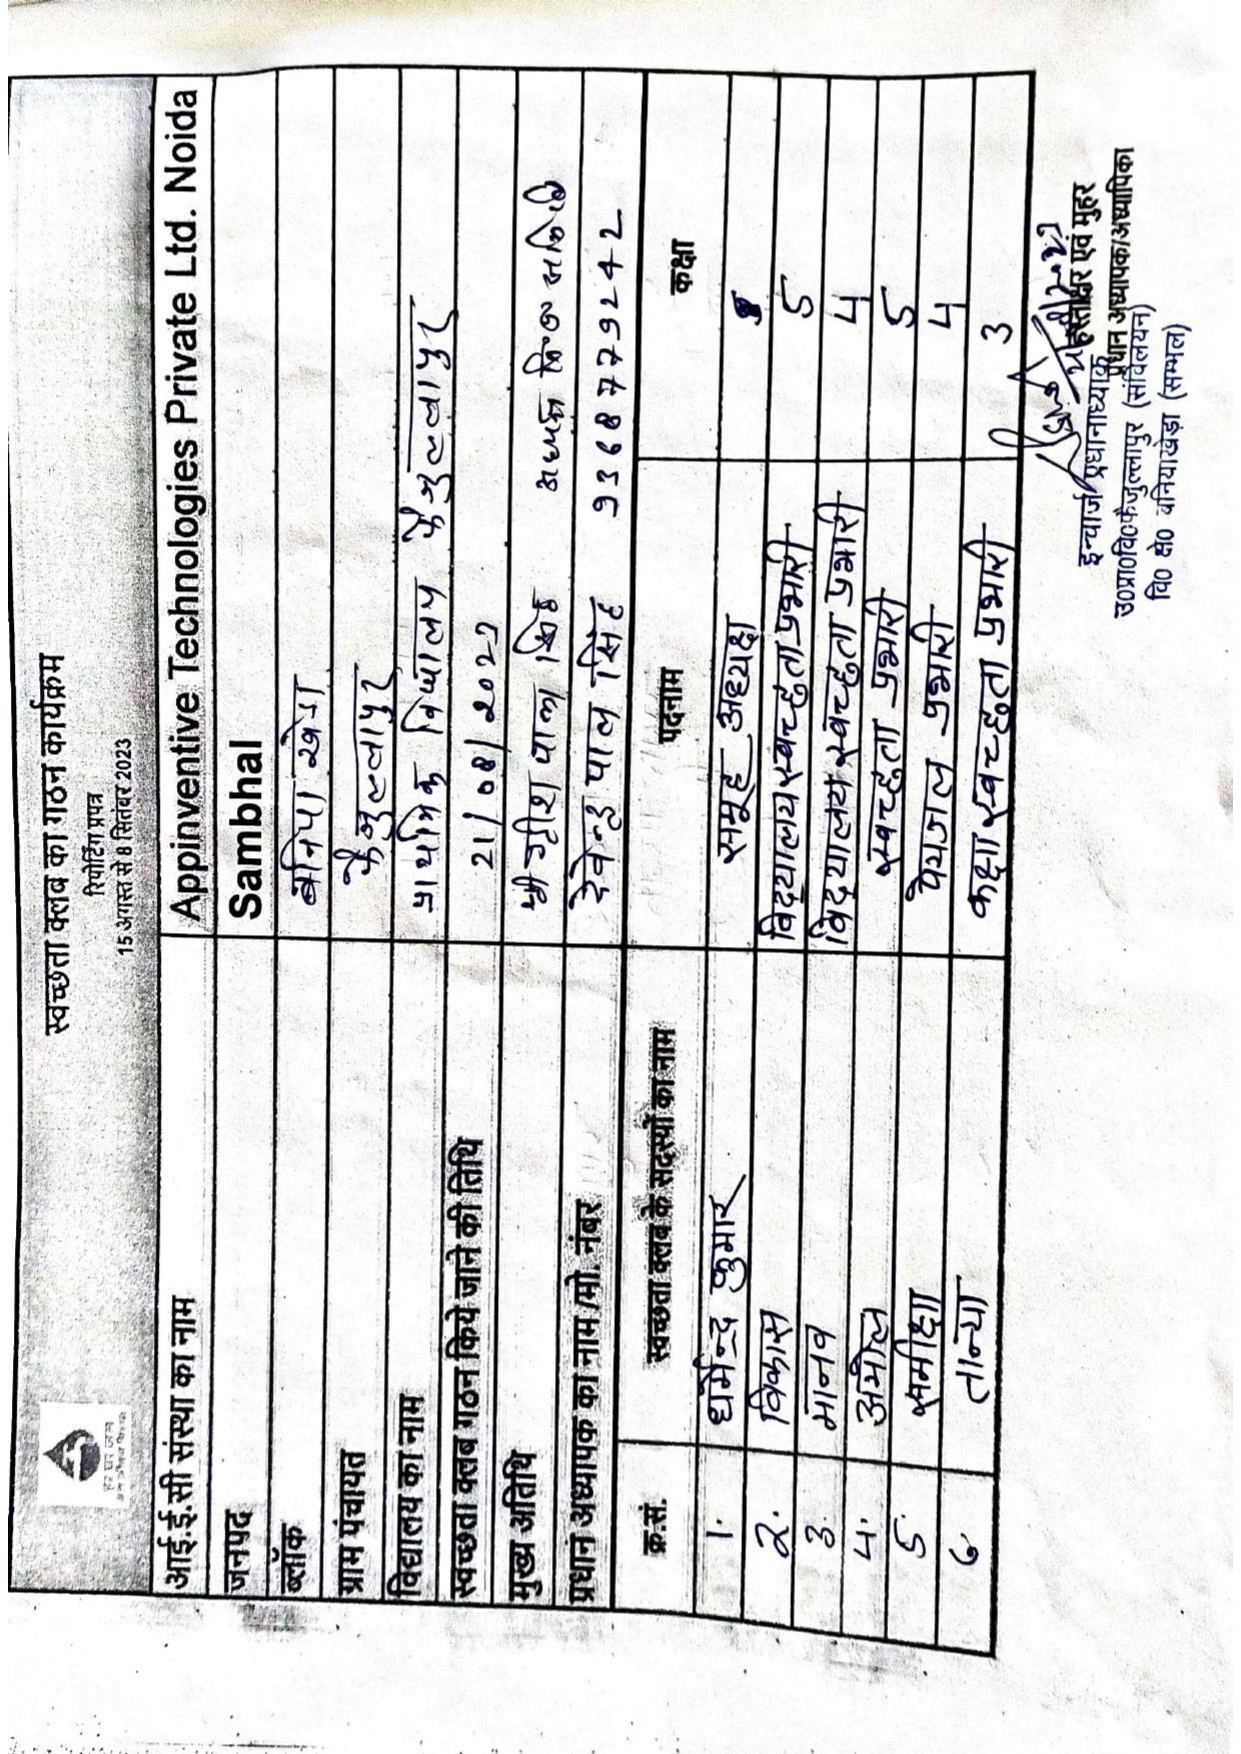 हर घर जल
स्वच्छता क्लब का गठन कार्यक्रम
रिपोर्टिंग प्रपत्र
15 अगस्त से 8 सितंबर 2023
आई.ई.सी संस्था का नाम Appinventive Technologies Private Ltd. Noida
जनपद Sambhal
ब्लॉक बनिया खेडा
ग्राम पंचायत फैजुल्लापुर
विद्यालय का नाम प्राथमिक विद्यालय फैजुल्लापुर
स्वच्छता क्लब गठन किये जाने की तिथि 21/08/2023
मुख्य अतिथि श्री पाल सिंह अध्यक्ष
प्रधान अध्यापक का नाम /मो. नंबर देवेन्द्र पाल सिंह 9368779242
क्र.सं. स्वच्छता क्लब के सदस्यों का नाम पदनाम कक्षा
1. धर्मेन्द्र कुमार समूह अध्यक्ष
2. विकास विद्यालय स्वच्छता प्रभारी 5
3. मानव विद्यालय स्वच्छता प्रभारी 4
4. अमोल स्वच्छता प्रभारी 5
5 समीक्षा पेयजल प्रभारी 4
6 तान्या कक्षा स्वच्छता प्रभारी 3
हस्ताक्षर एवं मुहर
प्रधान अध्यापक/अध्यापिका
इन्चार्ज प्रधानाध्यापक
उ०प्रा०वि०फैजुल्लापुर (संविलयन)
वि० क्षे० बनियाखेड़ा (सम्भल)